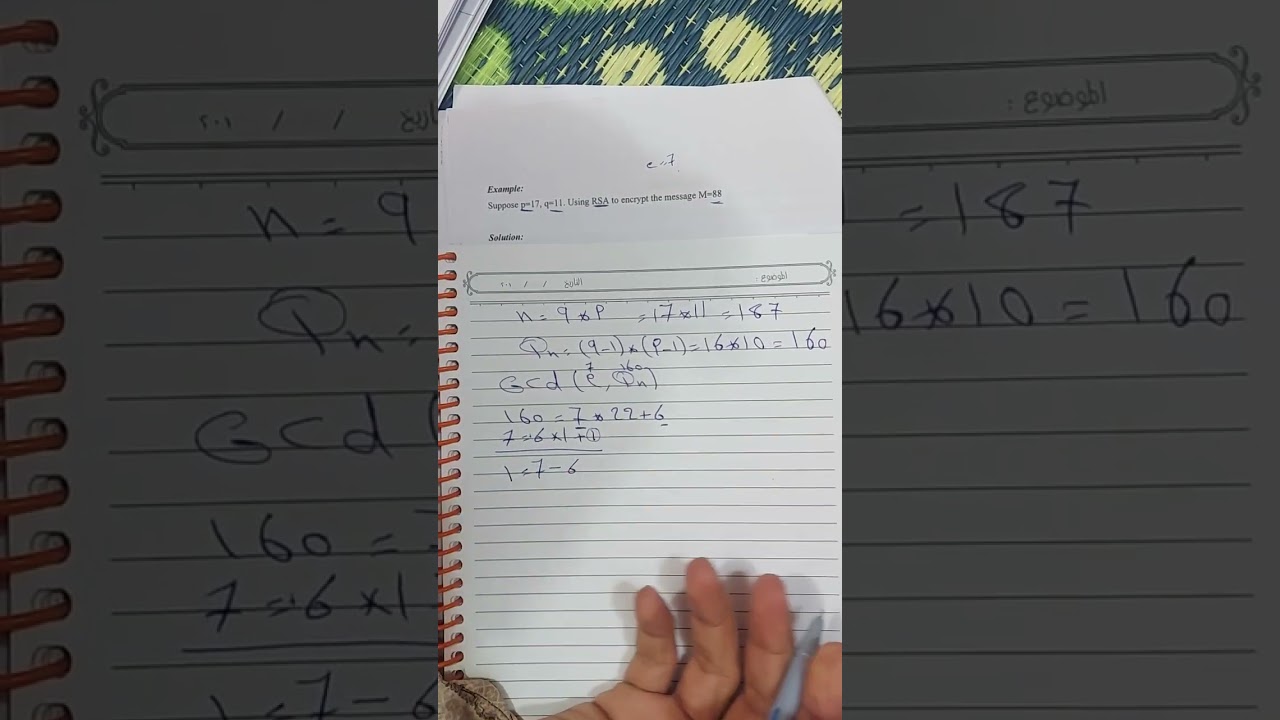 e=7
Example:
Suppose p=17, q=11. Using RSA to encrypt the message M=88
Solution:
التاريخ / / ٢٠١ الموضوع :
n = q * p = 17 * 11 = 187
Qn = (q-1) * (p-1) = 16 * 10 = 160
7 160
Gcd (e, Qn)
160 = 7 * 22 + 6
7 = 6 * 1 + 1
1 = 7 - 6